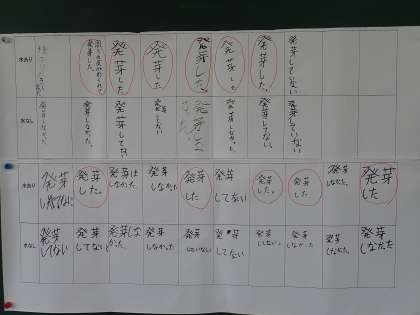 水あり
発芽した。
発芽した
発芽した。
発芽した
発芽した。
発芽していない
水なし
発芽しなかった。
発芽しなかった。
発芽してない
発芽しない
発芽した
発芽しなかった。
発芽してない。
発芽していない
水あり
発芽した。
発芽はしなかった。
発芽しなかった
発芽した
発芽してない
発芽した。
発芽した
発芽しなかった。
発芽した
水なし
発芽してない
発芽してない
発芽はしなかった。
発芽しなかった
発芽していない
発芽してない
発芽しない。
発芽しなかった
発芽しなかった。
発芽しなかった